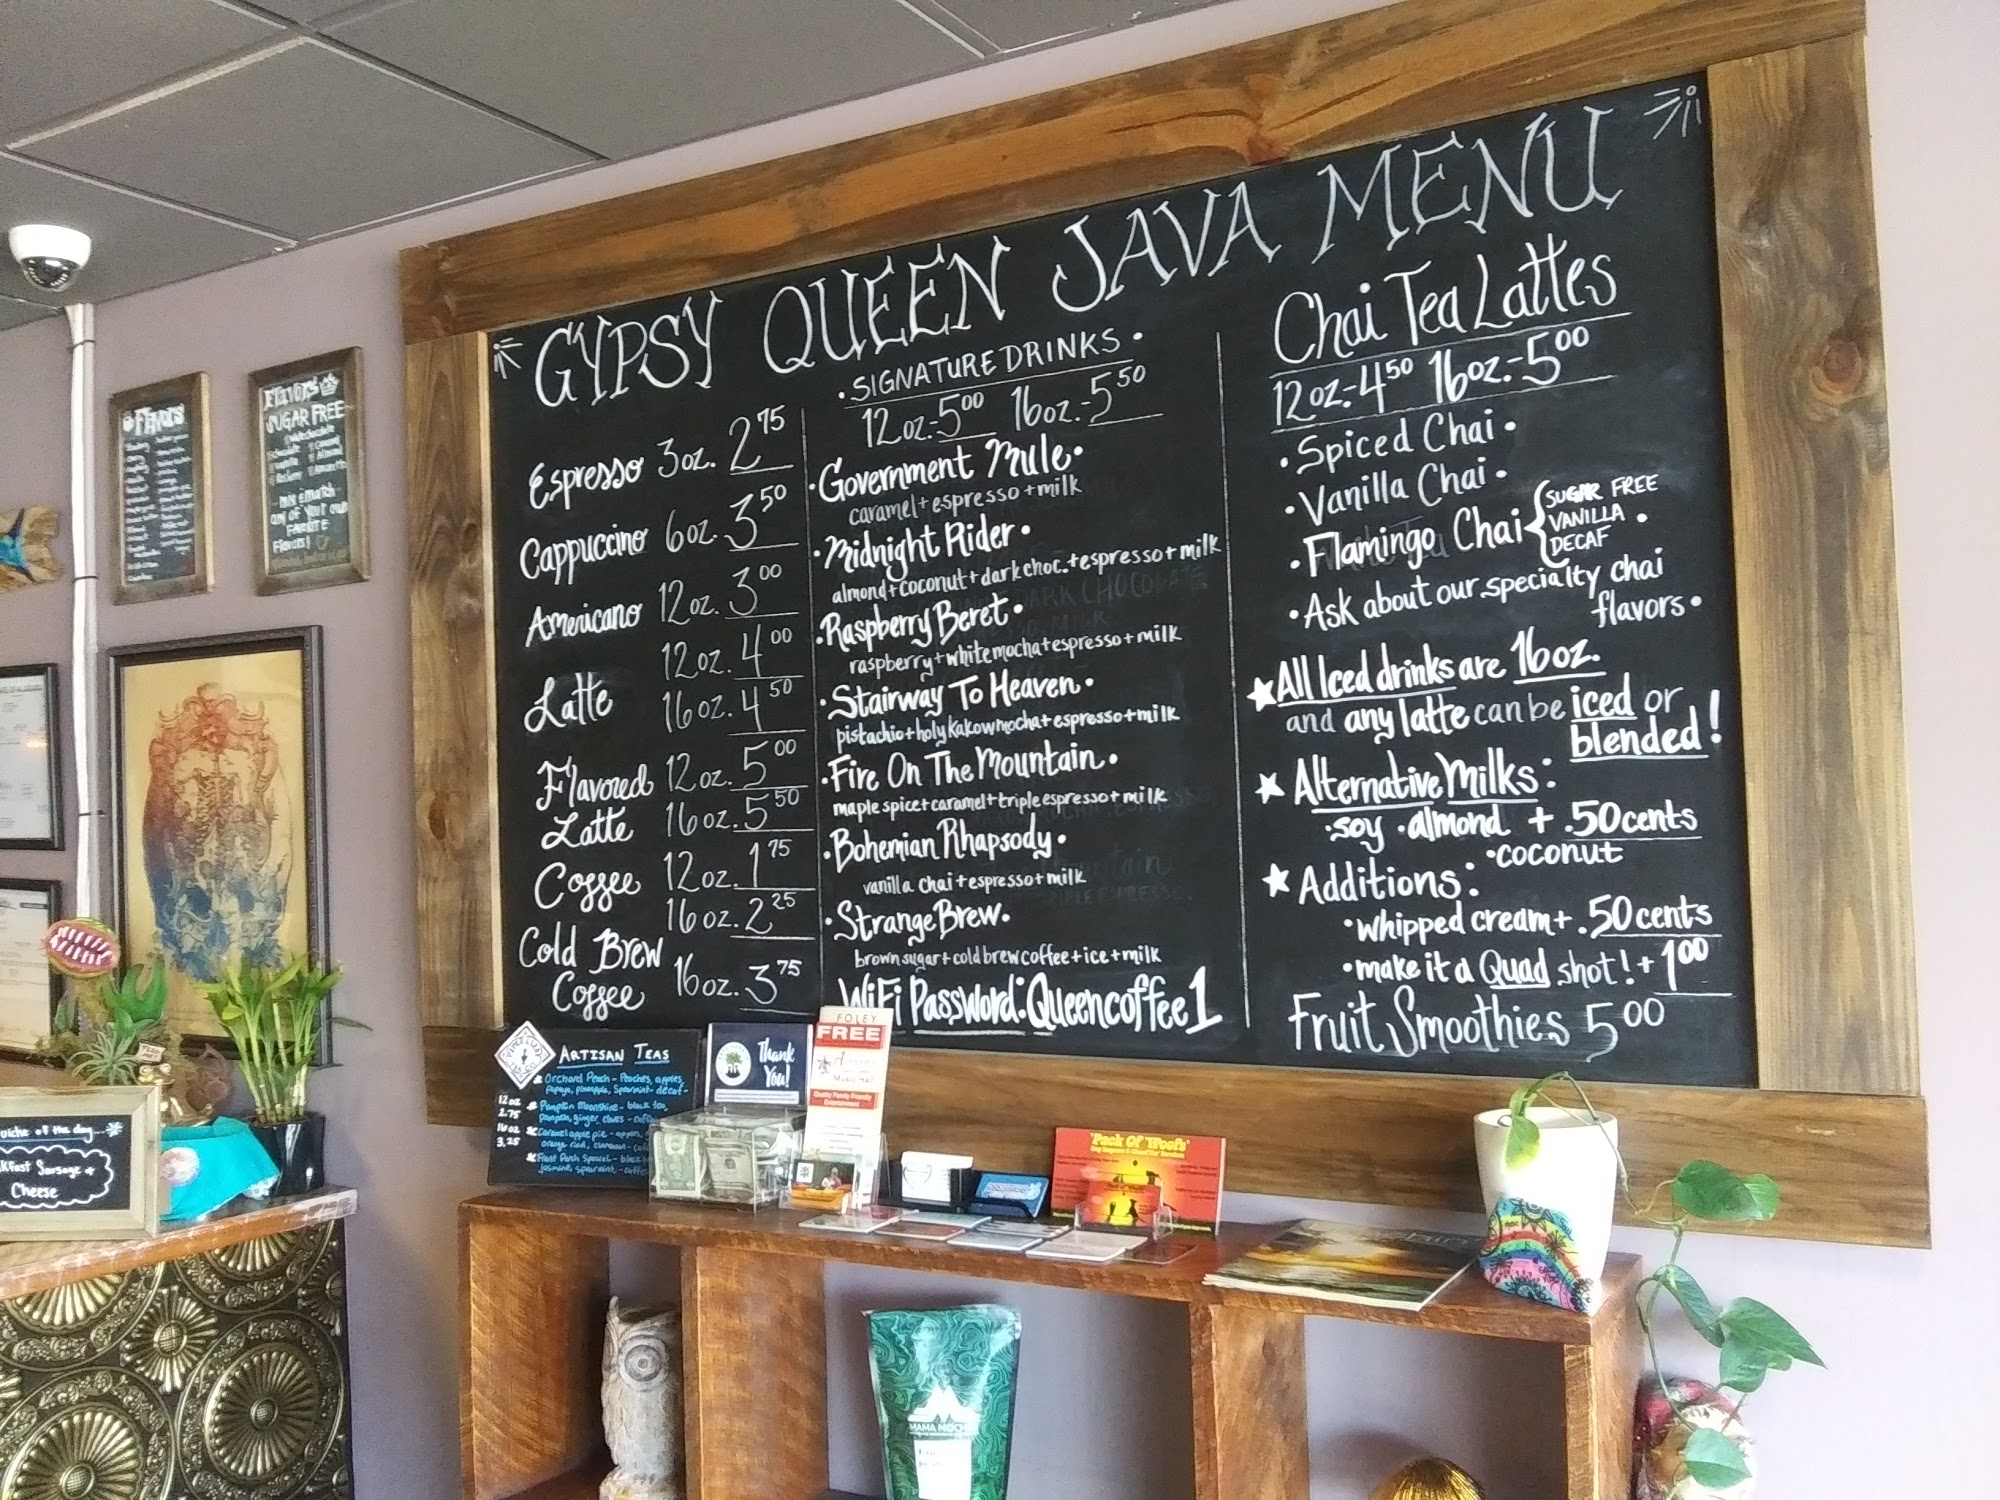 GYPSY QUEEN JAVA MENU
Espresso 3oz. 2.75
Cappuccino 6oz. 3.50
Americano 12oz. 3.00
12oz. 4.00
Latte 16oz. 4.50
Flavored 12oz. 5.00
Latte 16oz. 5.50
Coffee 12oz. 1.75
16oz. 2.25
Cold Brew
Coffee 16oz. 3.75
• SIGNATURE DRINKS •
12oz.-5.00 16oz.-5.50
• Government Mule •
caramel + espresso + milk
• Midnight Rider •
almond + coconut + dark choc. + espresso + milk
• Raspberry Beret •
raspberry + white mocha + espresso + milk
• Stairway To Heaven •
pistachio + holy kakow mocha + espresso + milk
• Fire On The Mountain •
maple spice + caramel + triple espresso + milk
• Bohemian Rhapsody •
vanilla chai + espresso + milk
• Strange Brew •
brown sugar + cold brew coffee + ice + milk
WiFi Password: Queencoffee1
Chai Tea Lattes
12oz.-4.50 16oz.-5.00
• Spiced Chai •
• Vanilla Chai •
• Flamingo Chai { SUGAR FREE
VANILLA •
DECAF
• Ask about our specialty chai
flavors •
★ All Iced drinks are 16oz.
and any latte can be iced or
blended!
★ Alternative Milks:
• soy • almond + .50 cents
• coconut
★ Additions:
• whipped cream + .50 cents
• make it a Quad shot! + 1.00
Fruit Smoothies 5.00
Flavors
Flavors
SUGAR FREE
mix & match
any of your own
FAVORITE
Flavors!
ARTISAN TEAS
Orchard Peach - Peaches, apples,
papaya, pineapple, spearmint - decaf -
12 oz
2.75
16 oz
3.25
Pumpkin Moonshine - black tea,
Caramel apple pie -
Front Porch Special - black
jasmine, spearmint -
Thank
You!
FOLEY
FREE
Music Hall
Quality Family Friendly
Entertainment
'Pack Of Woofs'
of the day...
Sausage +
Cheese
MAMA MOCHA